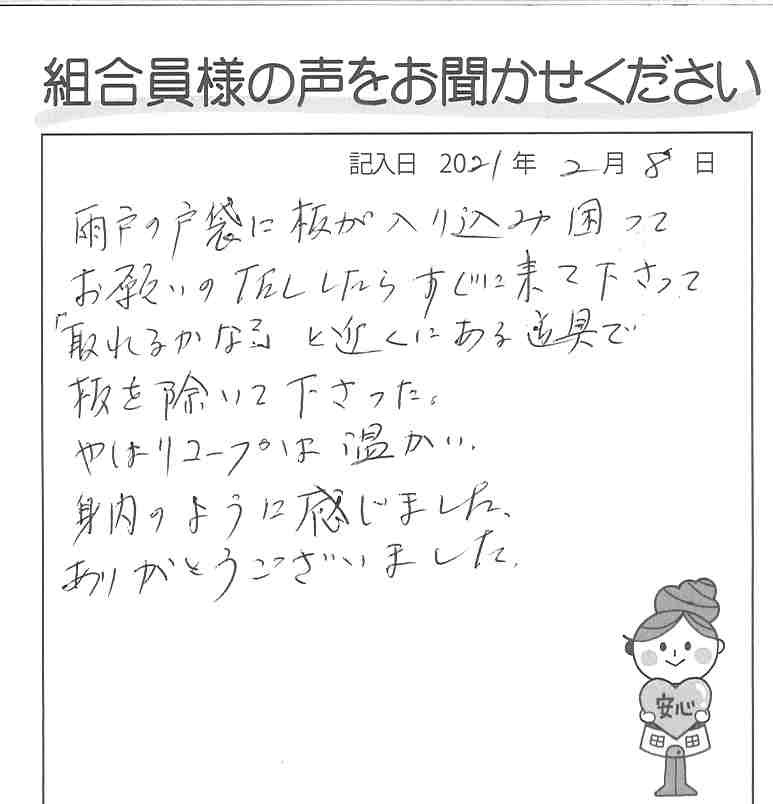 組合員様の声をお聞かせください
記入日 2021年 2月 8日
雨戸の戸袋に板が入り込み困って
お願いのTELしたらすぐに来て下さって
「取れるかなぁ」と近くにある道具で
板を除いて下さった。
やはりコープは温かい、
身内のように感じました、
ありがとうございました、
安心